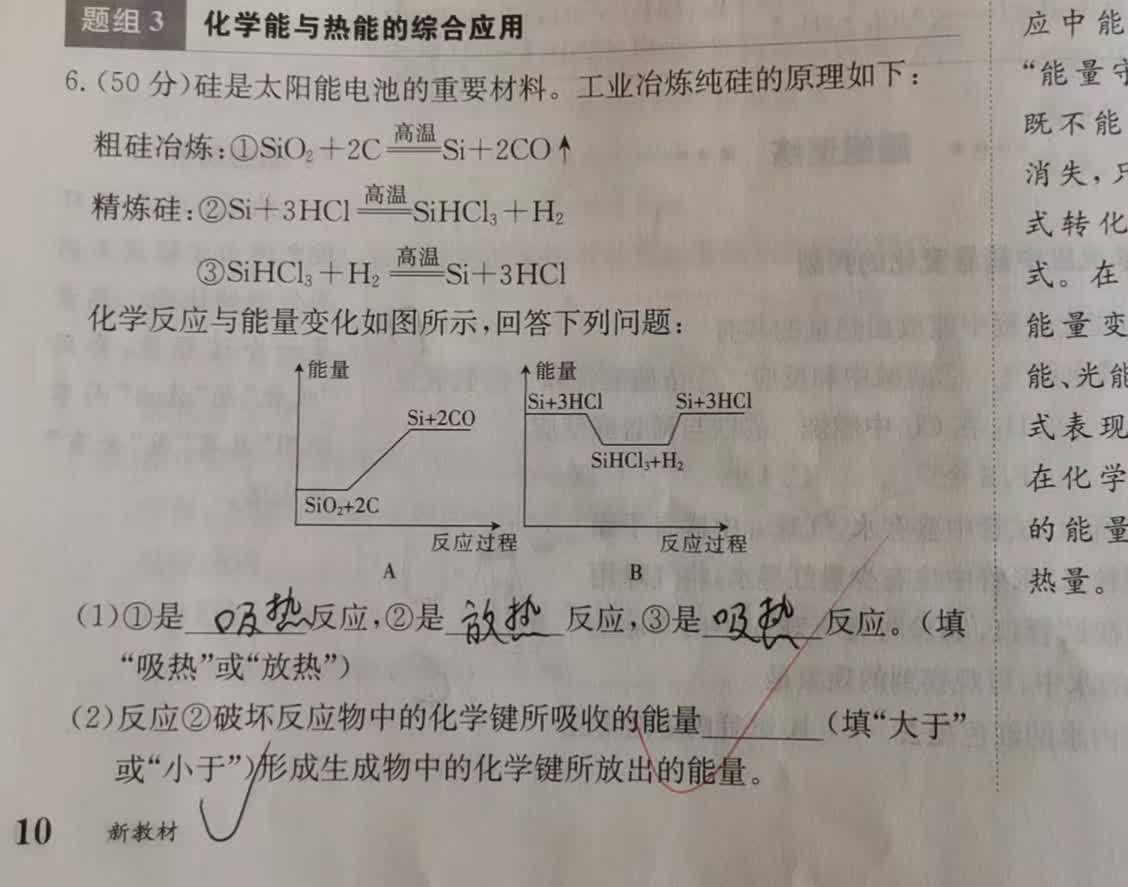 题组3 化学能与热能的综合应用
6.(50分)硅是太阳能电池的重要材料。工业冶炼纯硅的原理如下:
粗硅冶炼:①SiO₂+2C 高温 Si+2CO↑
精炼硅:②Si+3HCl 高温 SiHCl₃+H₂
③SiHCl₃+H₂ 高温 Si+3HCl
化学反应与能量变化如图所示,回答下列问题:
能量
Si+2CO
SiO₂+2C
反应过程
A
能量
Si+3HCl
Si+3HCl
SiHCl₃+H₂
反应过程
B
(1)①是 吸热 反应,②是 放热 反应,③是 吸热 反应。(填
“吸热”或“放热”)
(2)反应②破坏反应物中的化学键所吸收的能量______(填“大于”
或“小于”)形成生成物中的化学键所放出的能量。
10 新教材
应中能
“能量守
既不能
消失,只
式转化
式。在
能量变
能、光能
式表现
在化学
的能量
热量。